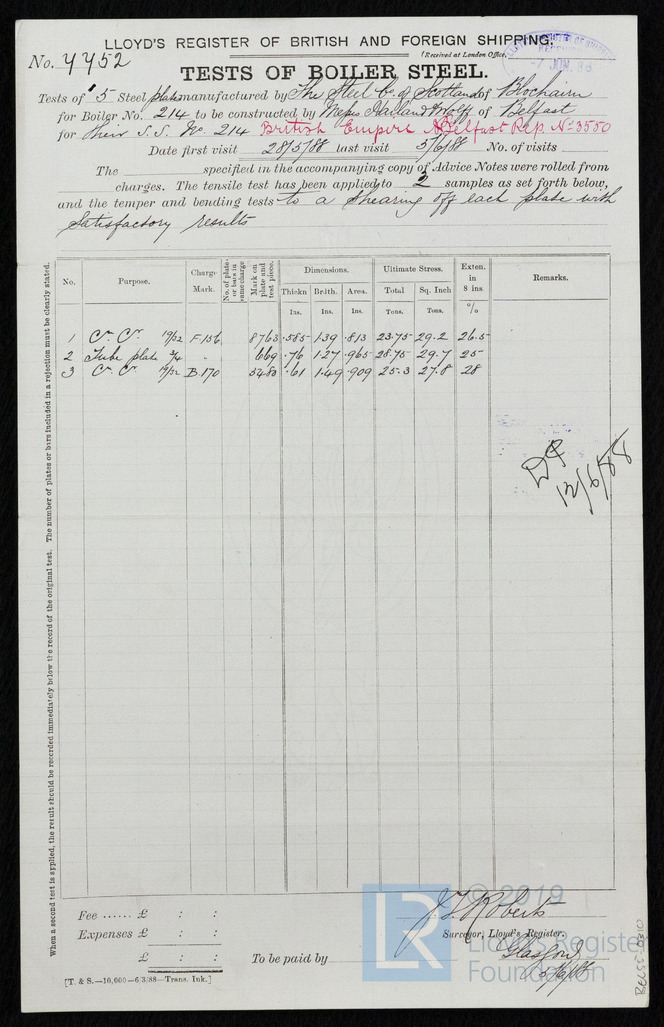 LLOYD'S REGISTER OF BRITISH AND FOREIGN SHIPPING.
(Received at London Office,
No. 4452
7 JUN. 88
TESTS OF BOILER STEEL.
Tests of 5 Steel plates manufactured by The Steel Co. of Scotland of Blochairn
for Boiler No. 214 to be constructed by Messrs Harland & Wolff of Belfast
for their S.S. No. 214 British Empire Belfast Rep. No 3550
Date first visit 28/5/88 last visit 5/6/88 No. of visits
The specified in the accompanying copy of Advice Notes were rolled from
charges. The tensile test has been applied to 2 samples as set forth below,
and the temper and bending tests to a shearing off each plate with
satisfactory results
No. Purpose. Charge Mark. No. of plates or bars in same charge Mark on plate and test piece. Dimensions. Ultimate Stress. Exten. in 8 ins. Remarks.
Thickn Brdth. Area. Total Sq. Inch
Ins. Ins. Ins. Tons. Tons. %
1 Cr. Cr. 19/32 F.156 8763 .585 1.39 .813 23.75 29.2 26.5
2 Tube plate 3/4 " 669 .76 1.27 .965 28.75 29.7 25
3 Cr. Cr. 19/32 B.170 5480 .61 1.49 .909 25.3 27.8 28
12/6/88
When a second test is applied, the result should be recorded immediately below the record of the original test. The number of plates or bars included in a rejection must be clearly stated.
Fee ...... £ : :
Expenses £ : :
£ : :
J. F. Roberts
Surveyor, Lloyd's Register.
To be paid by
Glasgow
5/6/88
[T. & S.—10,000—6/3/88—Trans. Ink.]
LR
© 2019
Lloyd's Register
Foundation